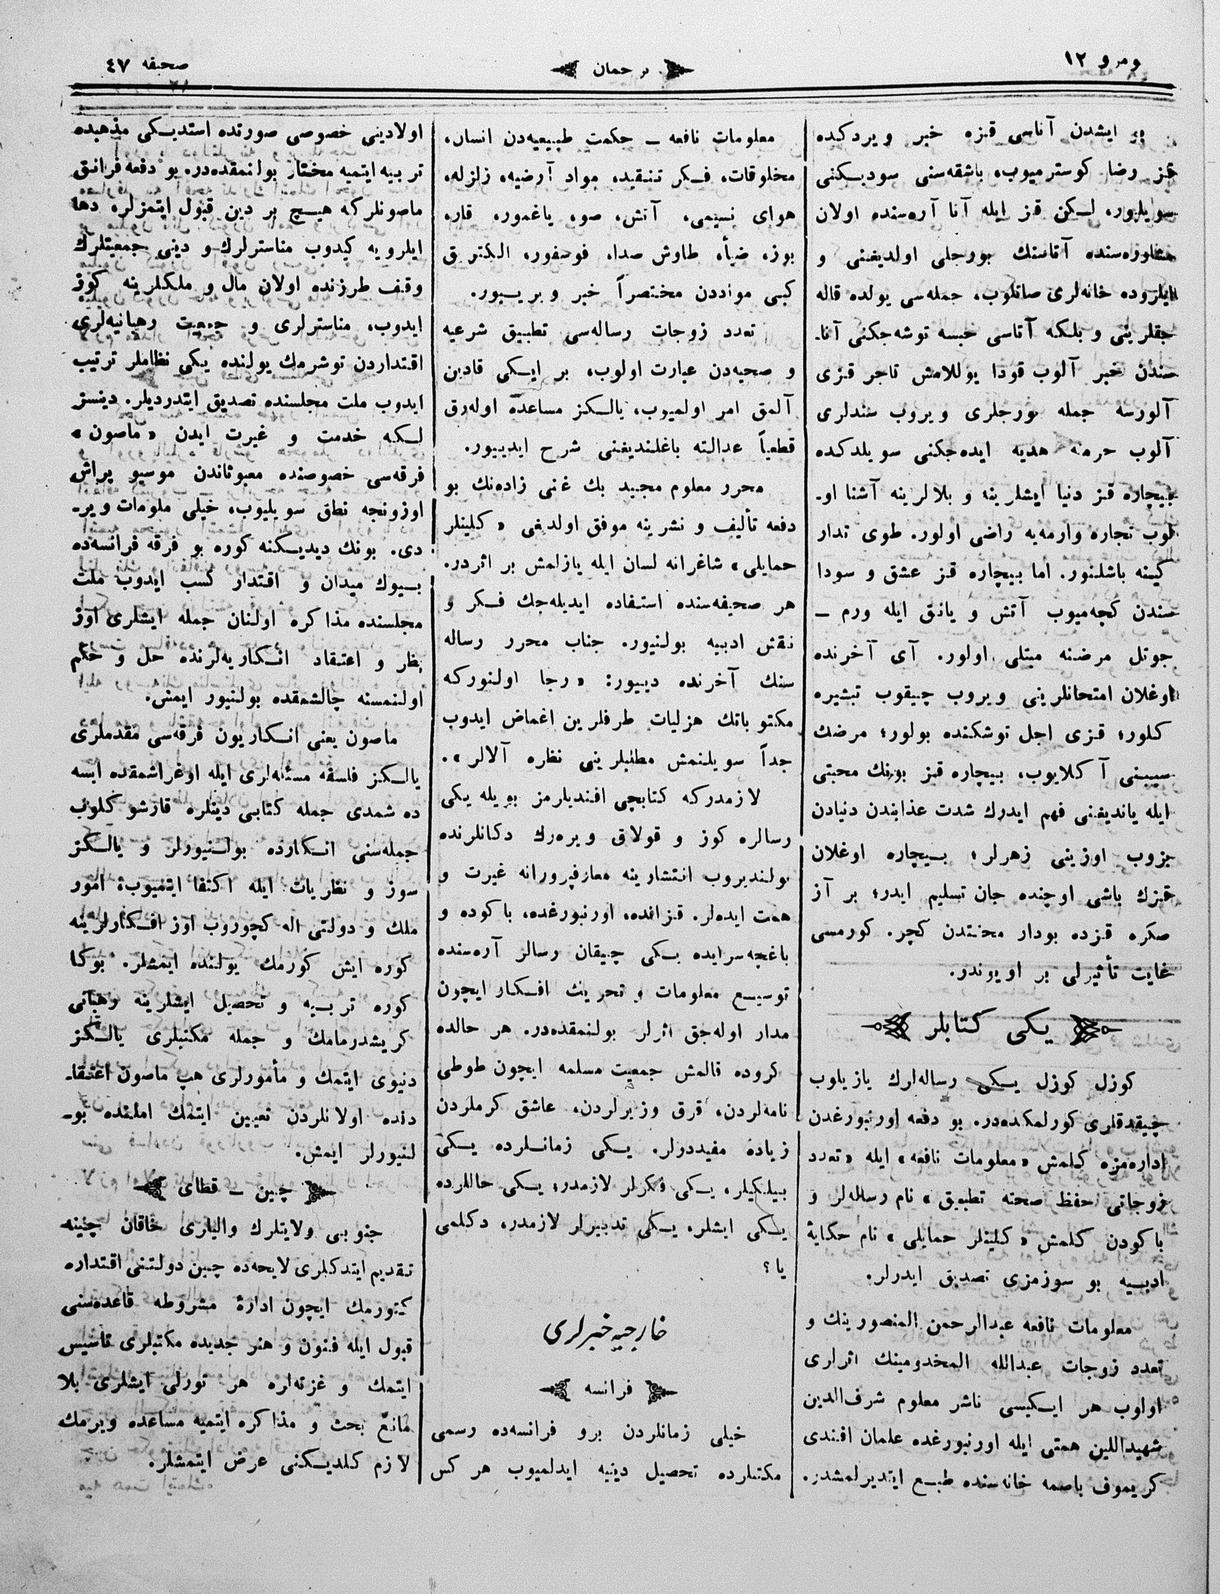 نومرو ١٢
ترجمان
صحيفه ٤٧
بر ايشدن آناسى قيزه خبر ويردكده
قز رضا كوسترميوب، باشقه‌سنى سوديكنى
سويليور، لكن قز ايله آنا آره‌سنده اولان
مشاوره‌سنده آتاسنك بورجلى اولديغنى و
ايلروده خانه‌لرى صاتلوب، جمله‌سى يولده قاله
جقلرينى و بلكه آتاسى حبسه توشه‌جكنى آنا۔
سندن خبر آلوب قودا يوللامش تاجر قزى
آلورسه جمله بورجلرى ويروب سندلرى
آلوب حرمته هديه ايده‌جكنى سويلدكده
بيچاره قز دنيا ايشلرينه و بلالرينه آشنا او۔
لوب تجاره وارمه‌يه راضى اولور. طوى تدار
كينه باشلنور. اما بيچاره قز عشق و سودا
سندن كچه‌ميوب آتش و يانق ايله ورم ـ
جوتل مرضنه مبتلى اولور. آى آخرنده
اوغلان امتحانلرينى ويروب چيقوب تبشيره
كلور؛ قزى اجل توشكنده بولور؛ مرضك
سببنى آكلايوب، بيچاره قز بونك محبتى
ايله يانديغنى فهم ايدرك شدت عذابندن دنيادن
بزوب اوزينى زهرلر؛ بيچاره اوغلان
قيزك باشى اوچنده جان تسليم ايدر؛ بر آز
صكره قزده بودار محنتدن كچر. كورمسى
غايت تأثيرلى بر اويوندر.
يكى كتابلر
كوزل كوزل يكى رساله‌لرك يازيلوب
چيقدقلرى كورلمكده‌در. بو دفعه اورنبورغدن
اداره‌مزه كلمش «معلومات نافعه» ايله «تعدد
زوجاتى حفظ صحته تطبيق» نام رساله‌لر و
باكودن كلمش «كلينلر حمايلى» نام حكايهٔ
ادبيه بو سوزمزى تصديق ايدرلر.
معلومات نافعه عبدالرحمن المنصورينك و
تعدد زوجات عبدالله المخدومينك اثرلرى
اولوب هر ايكيسى ناشر معلوم شرف‌الدين
شهيداللين همتى ايله اورنبورغده علمان افندى
كريموف باصمه خانه‌سنده طبع ايتديرلمشدر.
معلومات نافعه ـ حكمت طبيعيه‌دن انسان،
مخلوقات، فكر تنقيد، مواد آرضيه، زلزله،
هواى نسيمى، آتش، صو، ياغمور، قار،
بوز، ضيأ، طاوش صدا، فوسفور، الكتريق
كبى موادن مختصراً خبر ويرييور.
تعدد زوجات رساله‌سى تطبيق شرعيه
و صحيه‌دن عبارت اولوب، بر ايكى قادين
آلمق امر اولميوب، يالكز مساعده اوله‌رق
قطعياً عدالته باغلنديغنى شرح ايدييور.
محرر معلوم مجيد بك غنى زاده‌نك بو
دفعه تأليف و نشرينه موفق اولديغى «كلينلر
حمايلى» شاغرانه لسان ايله يازلمش بر اثردر.
هر صحيفه‌سنده استفاده ايديله‌جك فكر و
نقش ادبيه بولنيور. جناب محرر رساله
سنك آخرنده دييور: «رجا اولنوركه
مكتوباتك هزليات طرفلرين اغماض ايدوب
جداً سويلنمش مطلبلرينى نظره آلالر».
لازمدركه كتابچى افنديلرمز بويله يكى
رسالره كوز و قولاق ويره‌رك دكانلرنده
بولنديروب انتشارينه معارفپرورانه غيرت و
همت ايده‌لر. قزانده، اورنبورغده، باكوده و
باغچه‌سرايده يكى چيقان رسالز آره‌سنده
توسيع معلومات و تحريك افكار ايچون
مدار اوله‌جق اثرلر بولنمقده‌در. هر حالده
كروده قالمش جمعيت مسلمه ايچون طوطى
نامه‌لردن، قرق وزيرلردن، عاشق كرملردن
زياده مفيددولر. يكى زمانلرده يكى
بيلكيلر، يكى فكرلر لازمدر؛ يكى حاللرده
يكى ايشلر، يكى تدبيرلر لازمدر، دكلمى
يا؟
خارجيه خبرلرى
فرانسه
خيلى زمانلردن برو فرانسه‌ده رسمى
مكتبلرده تحصيل دينيه ايدلميوب هر كس
اولادينى خصوصى صورتده استديكى مذهبده
تربيه ايتميه مختار بولنمقده‌در. بو دفعه فرانق
ماصونلركه هيچ بر دين قبول ايتمزلر، دها
ايلرويه كيدوب مناسترلرك و دينى جمعيتلرك
وقف طرزنده اولان مال و ملكلرينه كوز
ايدوب، مناسترلرى و جمعيت رهبانيه‌لرى
اقتداردن توشرمك يولنده يكى نظاملر ترتيب
ايدوب ملت مجلسنده تصديق ايتدرديلر. دينسز
لكه خدمت و غيرت ايدن «ماصون»
فرقه‌سى خصوصنده مبعوثاندن موسيو پراش
اوزونجه نطق سويليوب، خيلى ملومات وير۔
دى. بونك ديديكنه كوره بو فرقه فرانسه‌ده
بيوك ميدان و اقتدار كسب ايدوب ملت
مجلسنده مذاكره اولنان جمله ايشلرى اوز
نظر و اعتقاد انكاريه‌لرنده حل و حكم
اولنمسنه چالشمقده بولنيور ايمش.
ماصون يعنى انكاريون فرقه‌سى مقدملرى
يالكز فلسفه مسئله‌لرى ايله اوغراشمقده ايسه
ده شمدى جمله كتابى دينلره قارشو كلوب
جمله‌سنى انكارده بولنيورلر و يالكز
سوز و نظريات ايله اكتفا ايتميوب؛ امور
ملك و دولتى اله كچوروب اوز افكارلرينه
كوره ايش كورمك يولنده ايمشلر. بوكا
كوره تربيه و تحصيل ايشلرينه رهبانى
كريشدرمامك و جمله مكتبلرى يالكز
دنيوى ايتمك و مأمورلرى هپ ماصون اعتقا۔
دنده اولانلردن تعيين ايتمك املنده بو۔
لنيورلر ايمش.
چين ـ قطاى
جنوبى ولايتلرك واليلرى خاقان چينه
تقديم ايتدكلرى لايحه‌ده چين دولتنى اقتداره
كتورمك ايچون ادارهٔ مشروطه قاعده‌سنى
قبول ايله فنون و هنر جديده مكتبلرى تأسيس
ايتمك و غزته‌لره هر تورلى ايشلرى بلا
مانع بحث و مذاكره ايتميه مساعده ويرمك
لازم كلديكنى عرض ايتمشلر.